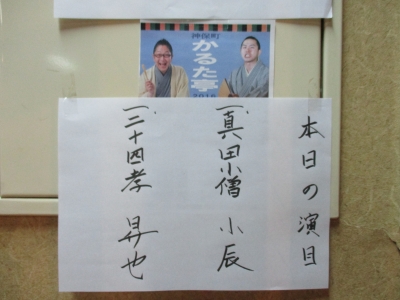 神保町
かるた亭
2016
本日の演目
一、真田小僧 小辰
一、二十四孝 昇也